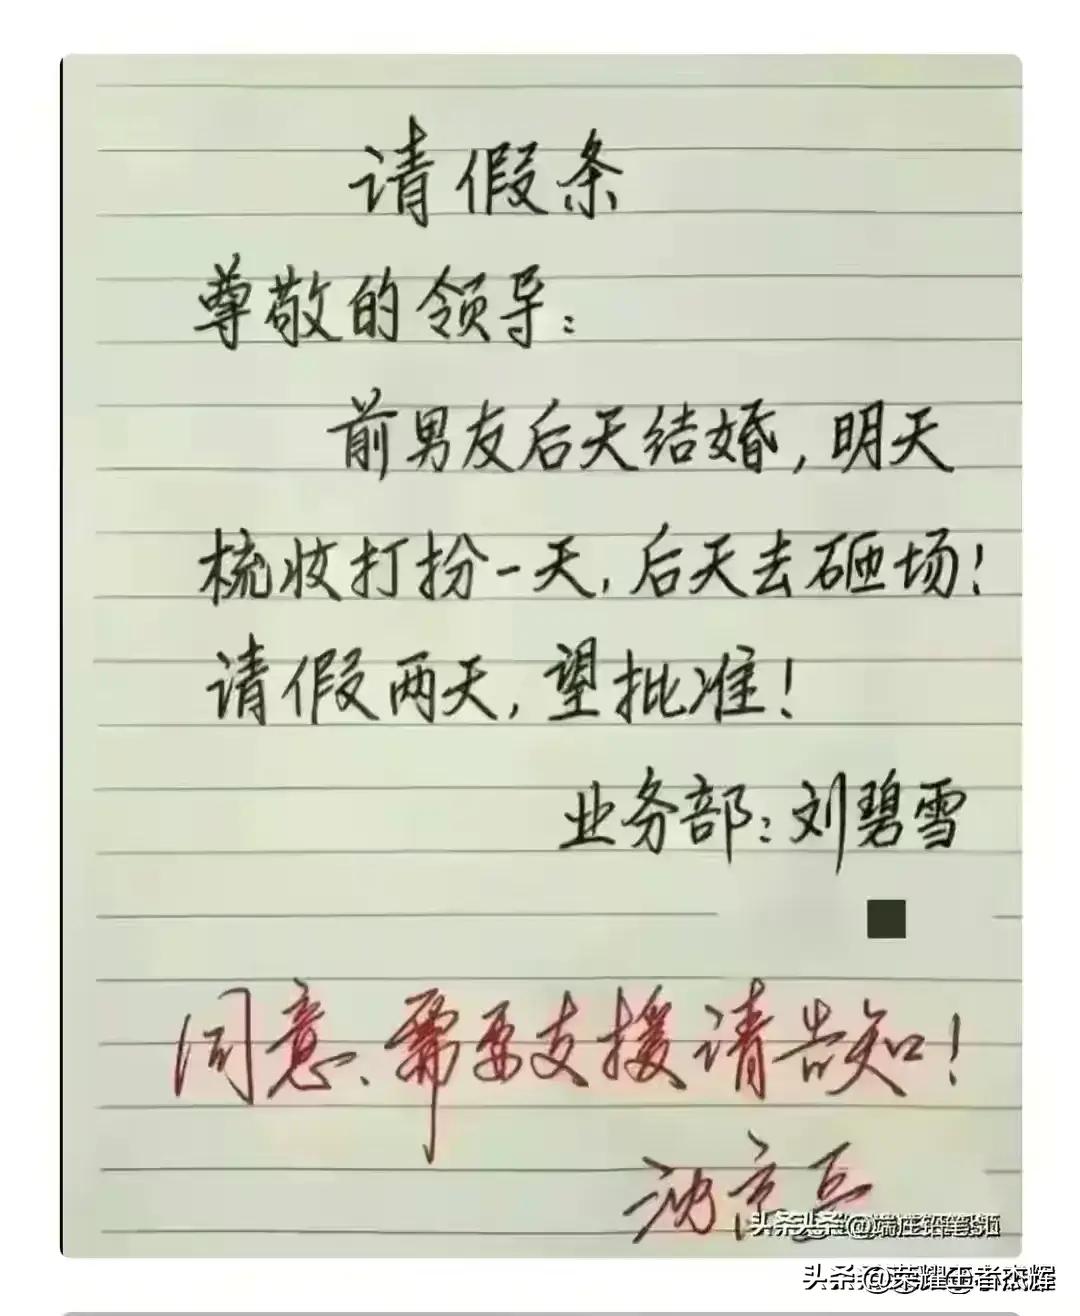 请假条
尊敬的领导：
前男友后天结婚，明天
梳妆打扮一天，后天去砸场！
请假两天，望批准！
业务部：刘碧雪
同意、需要支援请告知！
头条
头条@荣耀王者杰辉